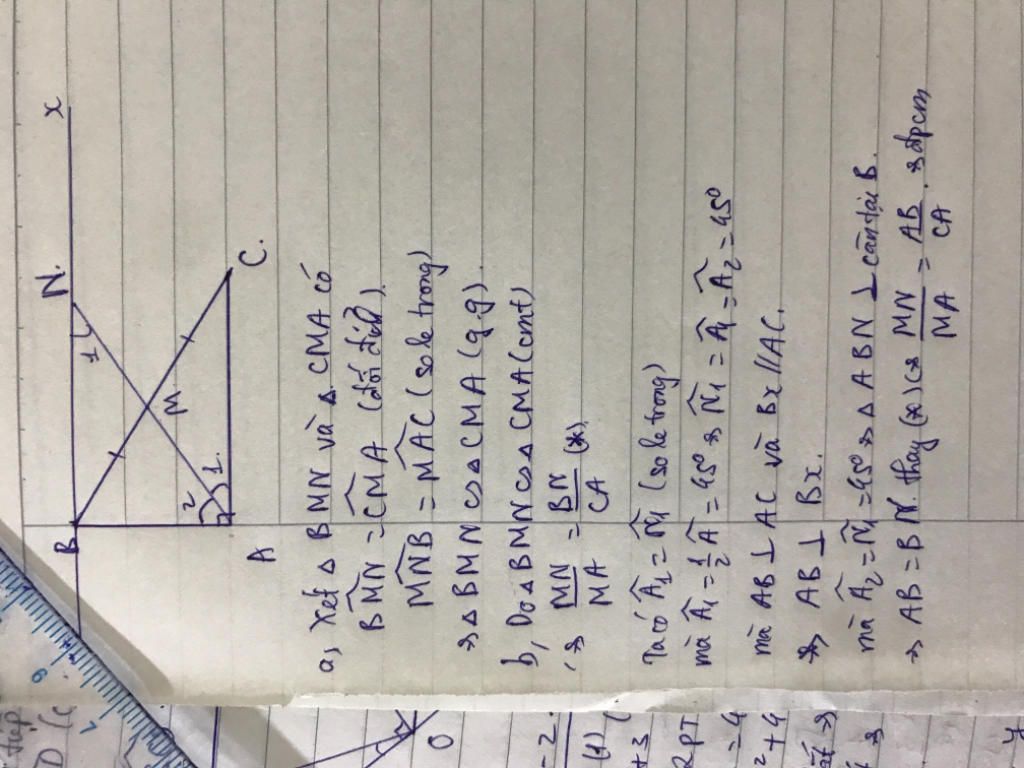 B
N.
x
1
M
2
1
A
C.
a, Xét Δ BMN và Δ CMA có
BMN̂ = CMÂ (đối đỉnh).
MNB̂ = MAĈ (so le trong)
⇒ Δ BMN ∽ Δ CMA (g.g).
b, Do Δ BMN ∽ Δ CMA (cmt)
⇒ MN/MA = BN/CA (*)
Ta có Â₁ = N̂₁ (so le trong)
mà Â₁ = 1/2 Â = 45° ⇒ N̂₁ = Â₁ = Â₂ = 45°
mà AB ⊥ AC và Bx // AC.
⇒ AB ⊥ Bx.
mà Â₂ = N̂₁ = 45° ⇒ Δ ABN ⊥ cân tại B.
⇒ AB = BN. thay (*) ⇒ MN/MA = AB/CA. ⇒ đpcm
O